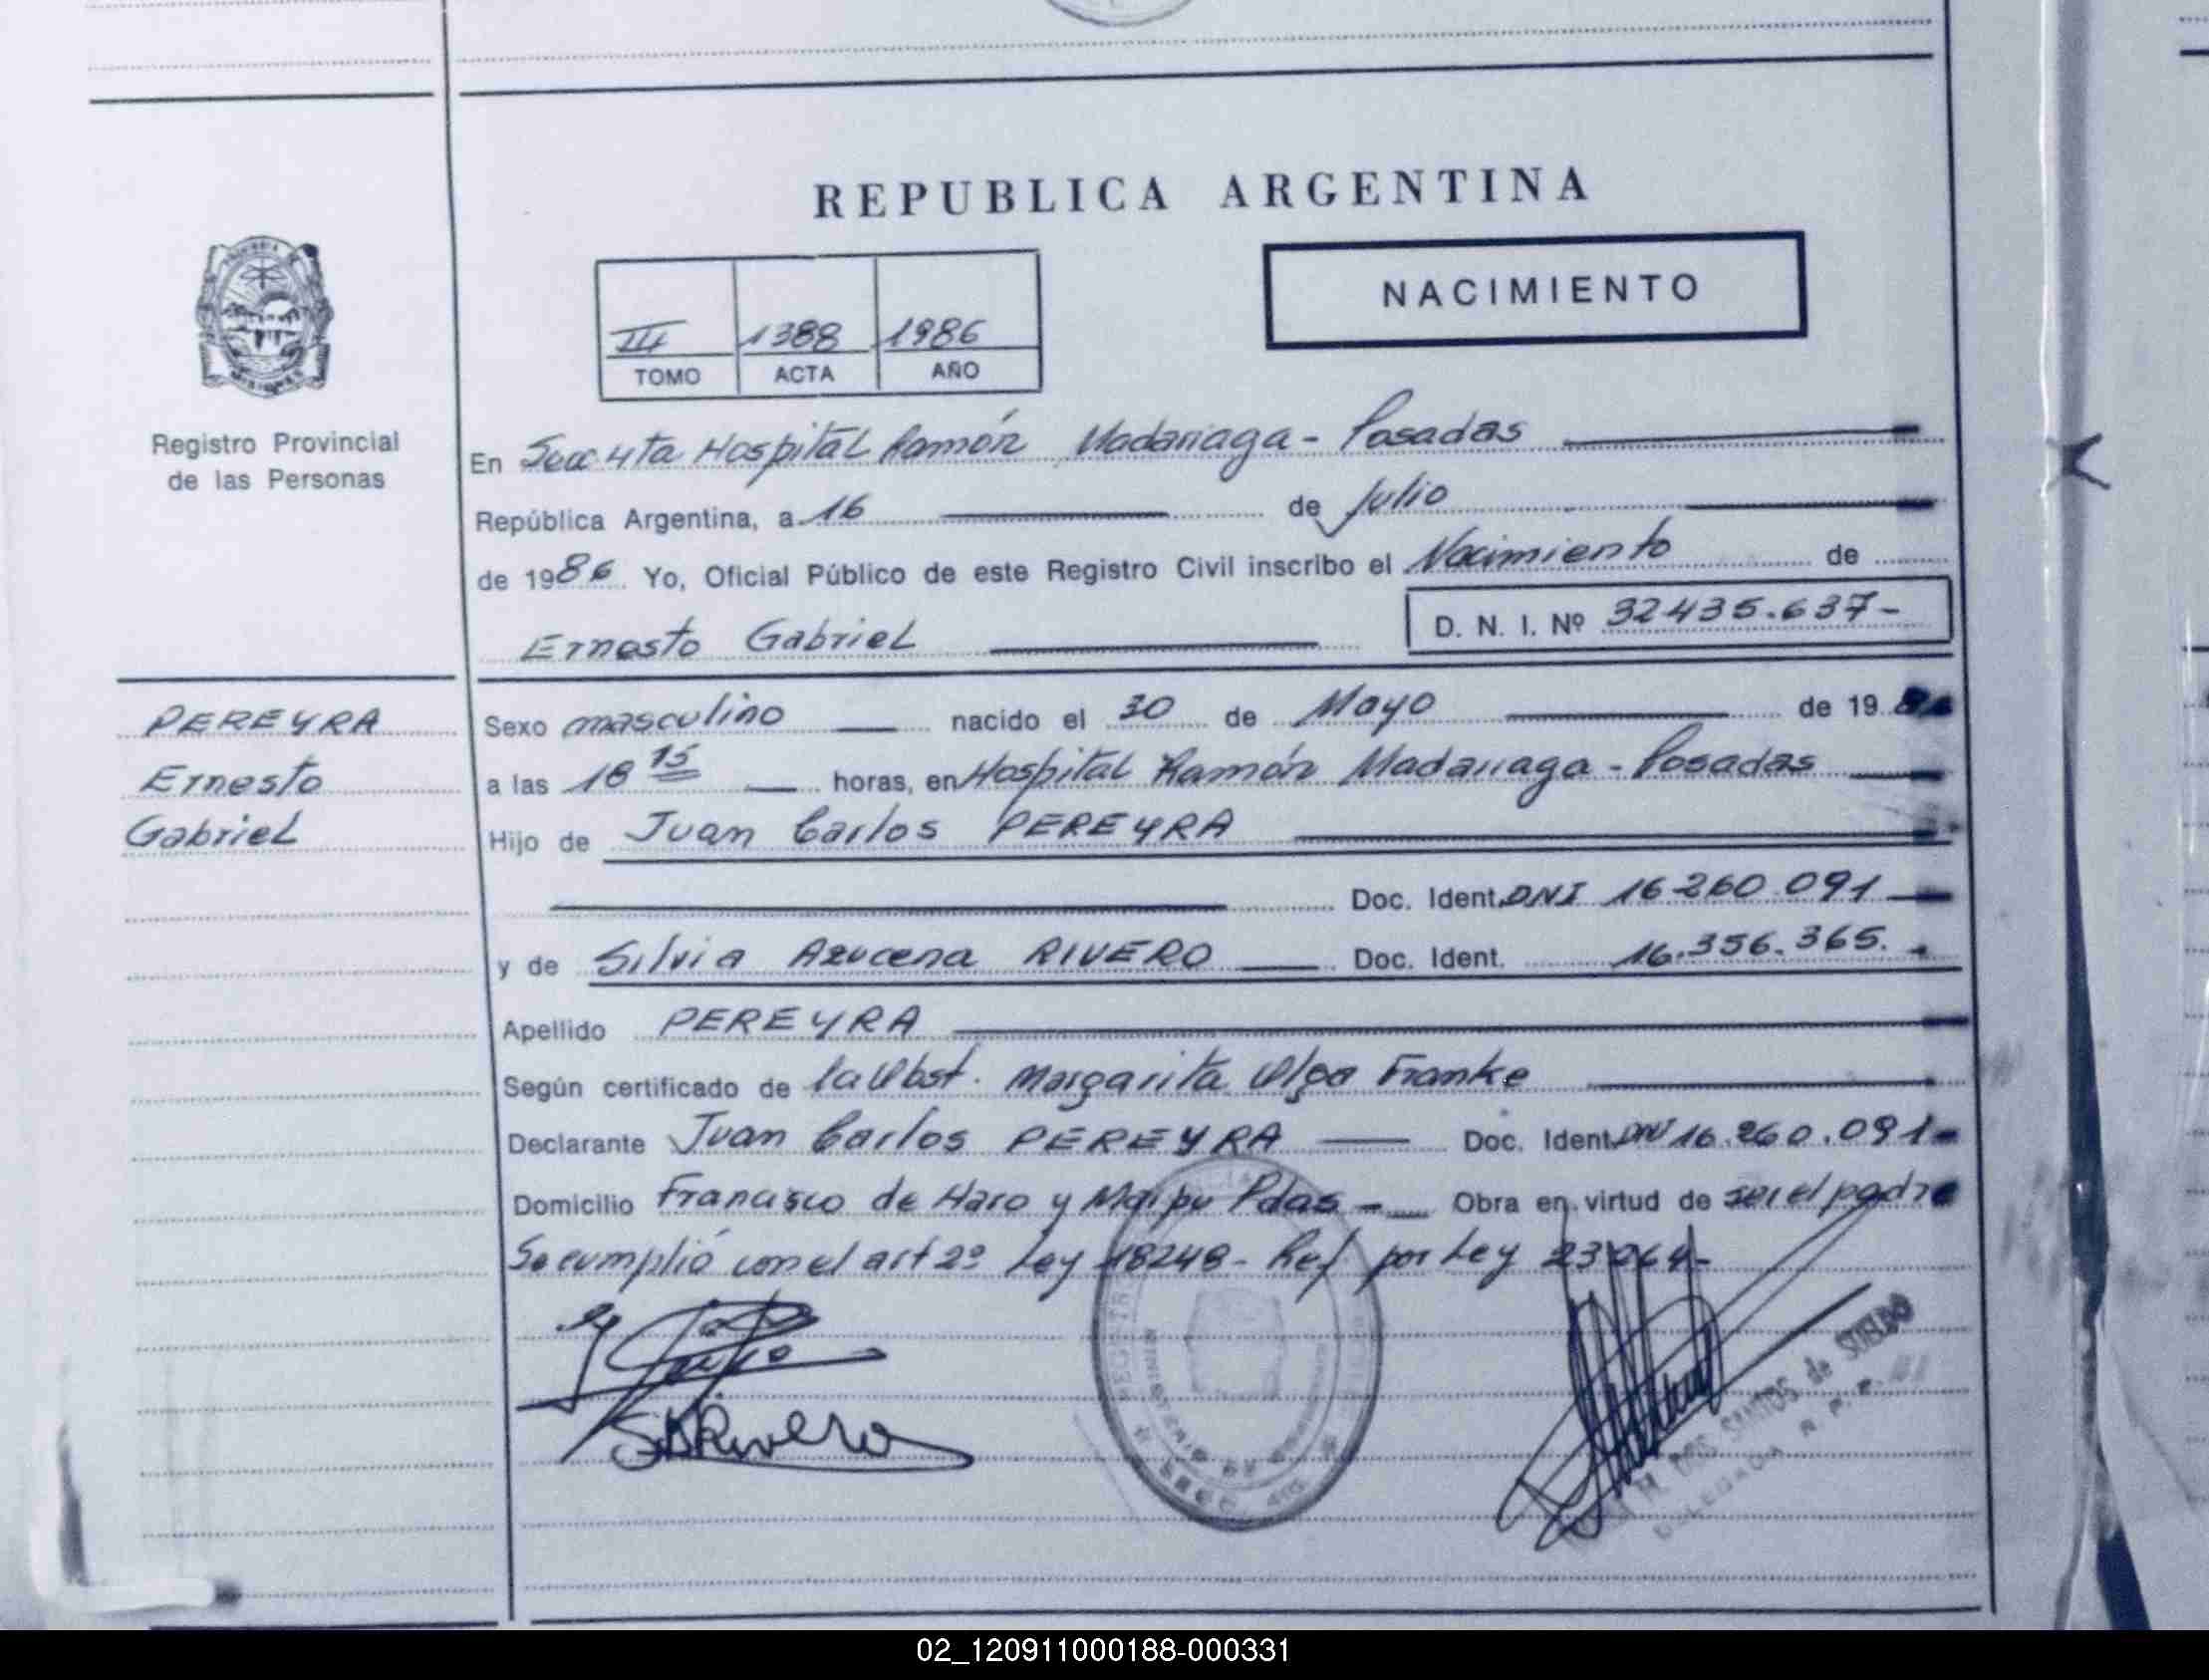 REPUBLICA ARGENTINA
NACIMIENTO
III 1388 1986
TOMO ACTA AÑO
Registro Provincial
de las Personas
En Secc 4ta Hospital Ramón Madariaga - Posadas
República Argentina, a 16 de Julio
de 1986 Yo, Oficial Público de este Registro Civil inscribo el Nacimiento de
Ernesto Gabriel
D. N. I. Nº 32435.637-
PEREYRA
Ernesto
Gabriel
Sexo masculino nacido el 30 de Mayo de 19
a las 18 15 horas, en Hospital Ramón Madariaga - Posadas
Hijo de Juan Carlos PEREYRA
Doc. Ident. DNI 16260.091
y de Silvia Azucena RIVERO Doc. Ident. 16.356.365.
Apellido PEREYRA
Según certificado de la Obst. Margarita Olga Franke
Declarante Juan Carlos PEREYRA Doc. Ident. DNI 16.260.091-
Domicilio Francisco de Haro y Maipu Pdas - Obra en virtud de ser el padre
Se cumplió con el art 2º Ley 18248 - Ref por Ley 23264-
SARivero
REGISTR
SECC. 4ta.
M. DOS SANTOS de SUELDO
DELEGADA R. P. P.
02_120911000188-000331